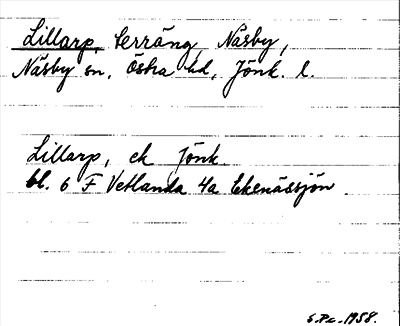 Lillarp, terräng, Näsby,
Näsby sn, Östra hd, Jönk. l.
Lillarp, ek Jönk
bl. 6 F Vetlanda 4a Ekenässjön.
1958.